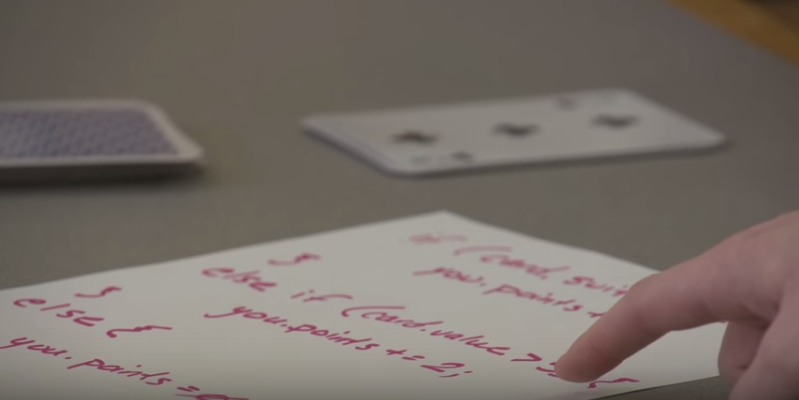 if (card.suit
you.points +
}
else if (card.value >
you.points += 2;
}
else {
you.points =